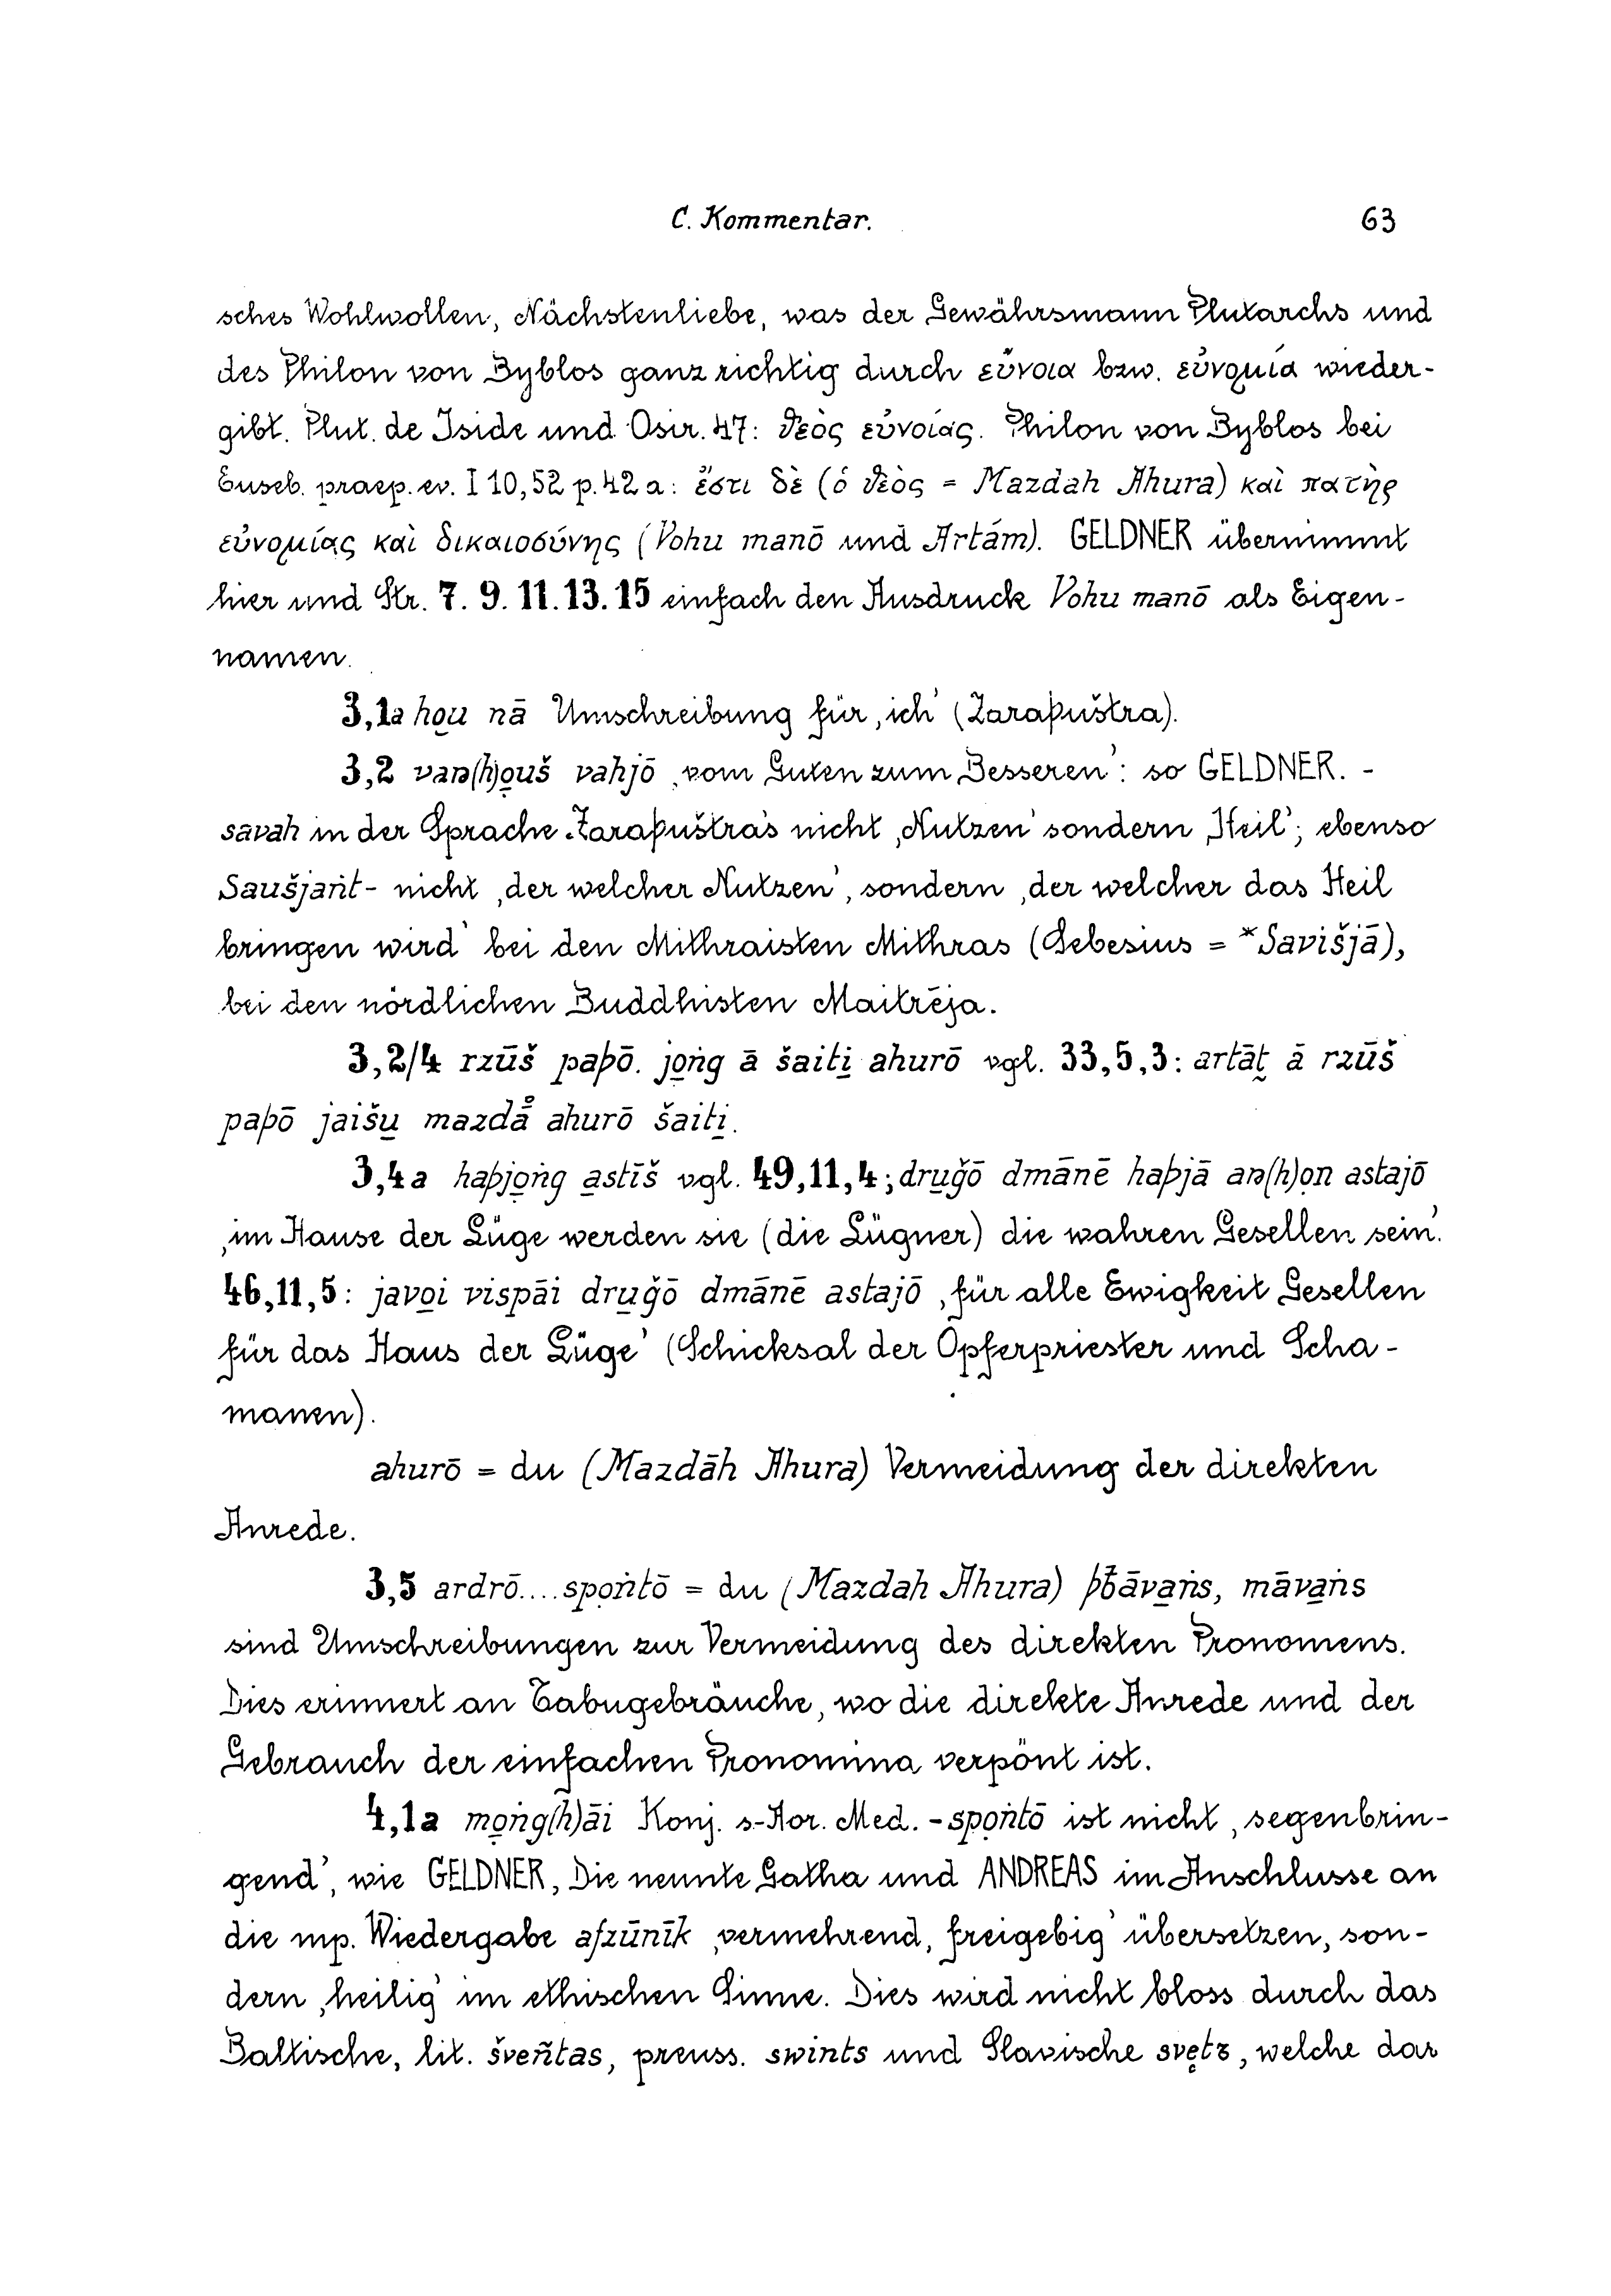 C. Kommentar. 63
sches Wohlwollen, Nächstenliebe, was der Gewährsmann Plutarchs und
des Philon von Byblos ganz richtig durch εὔνοια bzw. εὐνομία wieder-
gibt. Plut. de Iside und Osir. 47: θεὸς εὐνοίας. Philon von Byblos bei
Euseb. praep. ev. I 10,52 p. 42 a: ἔστι δὲ (ὁ θεὸς = Mazdah Ahura) καὶ πατὴρ
εὐνομίας καὶ δικαιοσύνης (Vohu manō und Artám). GELDNER übernimmt
hier und Str. 7. 9. 11. 13. 15 einfach den Ausdruck Vohu manō als Eigen-
namen.
3,1a ho̱u nā Umschreibung für ‚ich’ (Zaraþuštra).
3,2 vaꬻ(h)o̱uš vahjō ‚vom Guten zum Besseren’: so GELDNER. -
savah in der Sprache Zaraþuštra's nicht ‚Nutzen’ sondern ‚Heil’; ebenso
Saušjaṅt- nicht ‚der welcher Nutzen’, sondern ‚der welcher das Heil
bringen wird’ bei den Mithraisten Mithras (Sebesius = *Savišjā),
bei den nördlichen Buddhisten Maitrēja.
3,2/4 rzūš paþō. jo̱ṅg ā šaiti̱ ahurō vgl. 33,5,3: artāt̰ ā rzūš
paþō jaišu̱ mazdå̄ ahurō šaiti̱.
3,4a haþjo̱ṅg a̱stīš vgl. 49,11,4; dru̱ǧō dmānē haþjā aꬻ(h)o̱n astajō
‚im Hause der Lüge werden sie (die Lügner) die wahren Gesellen sein’.
46,11,5: javo̱i vispāi dru̱ǧō dmānē astajō ‚für alle Ewigkeit Gesellen
für das Haus der Lüge’ (Schicksal der Opferpriester und Scha-
manen).
ahurō = du (Mazdāh Ahura) Vermeidung der direkten
Anrede.
3,5 ardrō.... spo̱ṅtō = du (Mazdah Ahura) þƀāva̱ṅs, māva̱ṅs
sind Umschreibungen zur Vermeidung des direkten Pronomens.
Dies erinnert an Tabugebräuche, wo die direkte Anrede und der
Gebrauch der einfachen Pronomina verpönt ist.
4,1a mo̱ṅg(h)āi Konj. s-Aor. Med. - spo̱ṅtō ist nicht ‚segenbrin-
gend’, wie GELDNER, Die neunte Gatha und ANDREAS im Anschlusse an
die mp. Wiedergabe afzūnīk ‚vermehrend, freigebig’ übersetzen, son-
dern ‚heilig’ im ethischen Sinne. Dies wird nicht bloss durch das
Baltische, lit. šveñtas, preuss. swints und Slavische svętъ, welche dar